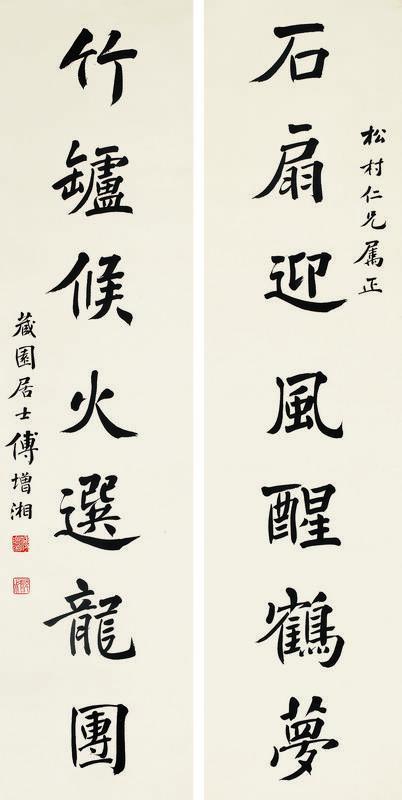 松村仁兄属正
石扇迎風醒鶴夢
竹罏候火選龍團
藏園居士傅增湘